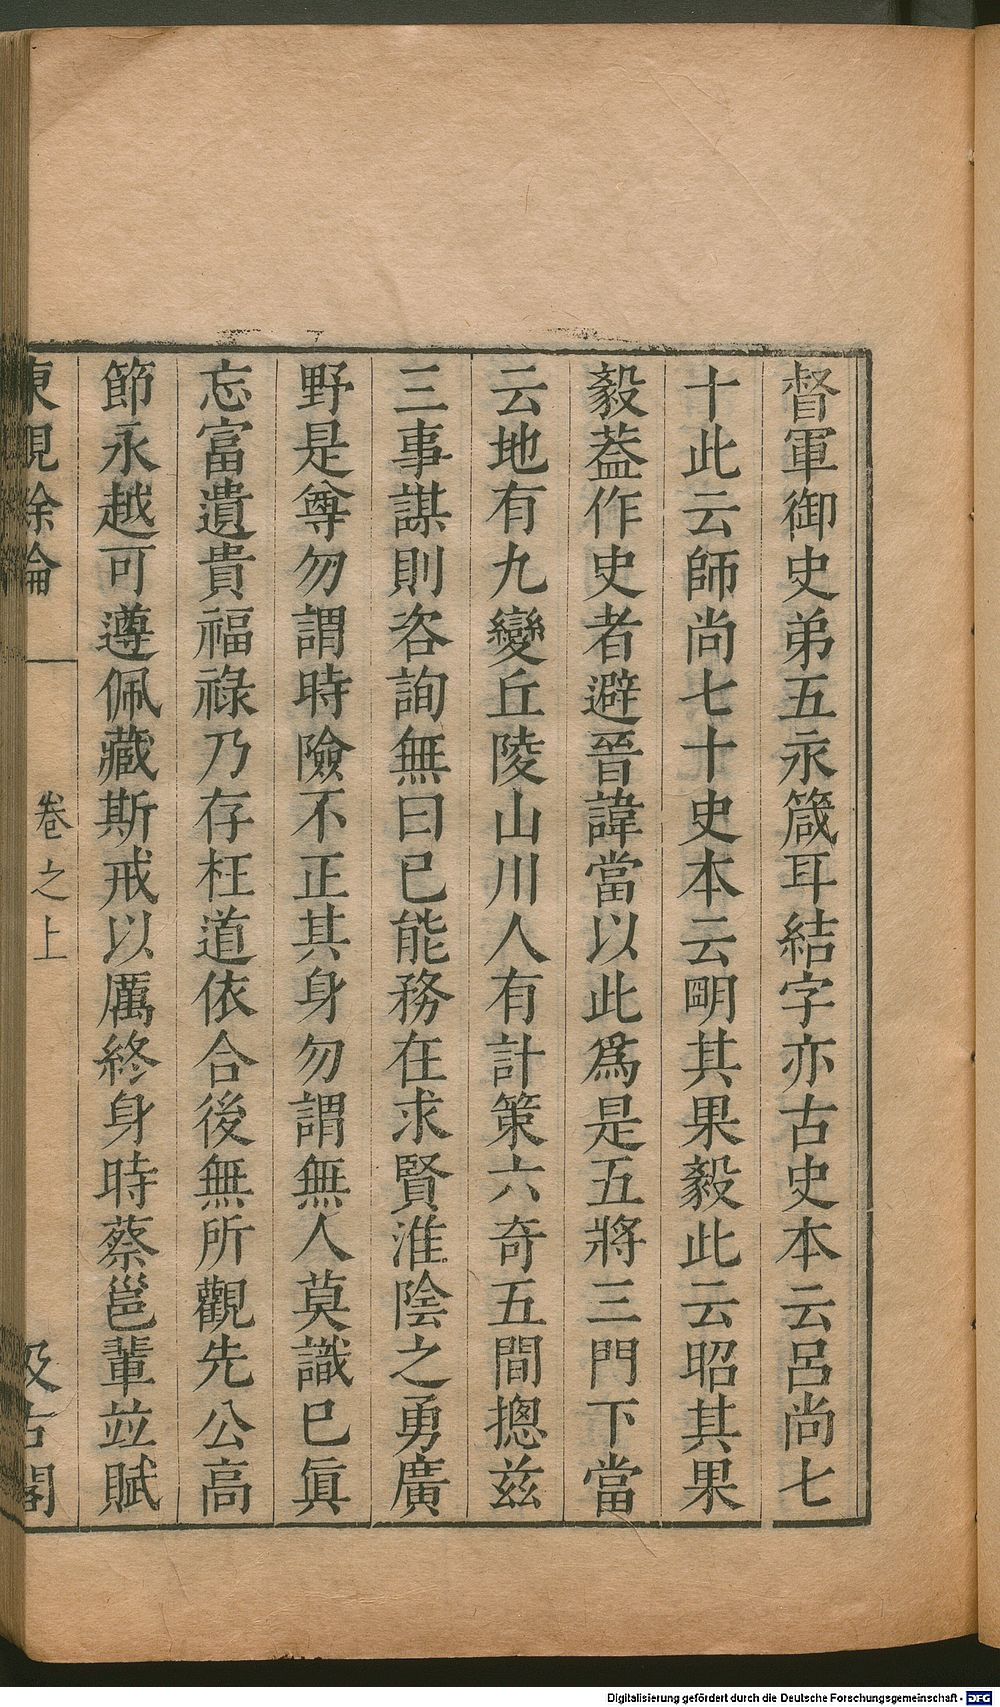 督軍御史弟五永箴耳結字亦古史本云呂尚七
十此云師尚七十史本云明其果毅此云昭其果
毅葢作史者避晉諱當以此爲是五將三門下當
云地有九變丘陵山川人有計策六奇五間摠茲
三事謀則咨詢無曰已能務在求賢淮陰之勇廣
野是尊勿謂時險不正其身勿謂無人莫識已眞
忘富遺貴福祿乃存枉道依合後無所觀先公高
節永越可遵佩藏斯戒以厲終身時蔡邕輩竝賦
東觀餘論 卷之上 汲古閣
Digitalisierung gefördert durch die Deutsche Forschungsgemeinschaft - DFG